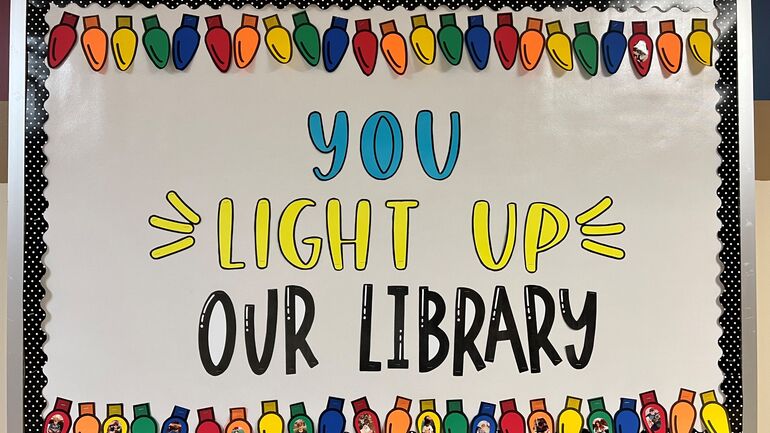 YOU
LIGHT UP
OUR LIBRARY